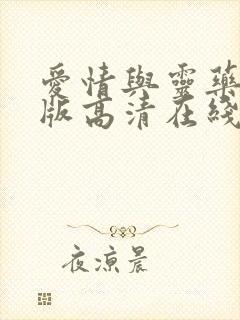 愛情與靈藥
版高清在綫
夜涼晨